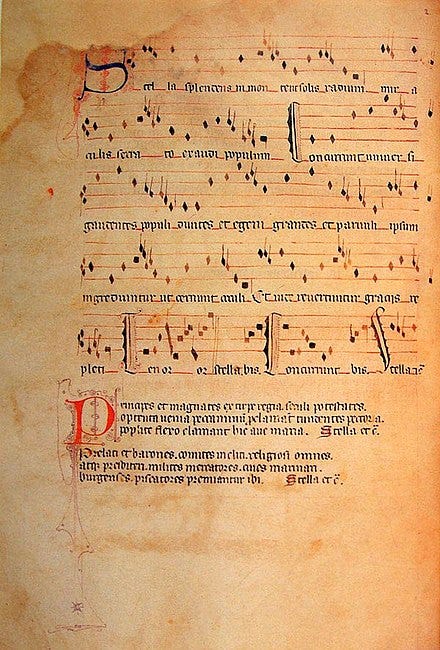 Stel la splendens in mon te ut solis radium mir a
culis serra to exaudi populum Concurrunt univer si
gaudentes populi divites et egeni grandes et parvuli ipsum
ingrediuntur ut cernunt oculi Et inde revertuntur gracijs re
pleti Tenor or stella. bis. Concurrunt bis. Stella et c̄.
Principes et magnates ex stirpe regia. seculi potestates.
optenta venia peccaminum p̄clamāt tundentes pectora.
poplite flexo clamant hic ave maria. Stella et c̄.
Prelati et barones. comites incliti. religiosi omnes.
atqȝ presbiteri. milites mercatores. cives marinari.
burgenses. piscatores premiantur ibi. Stella et c̄.